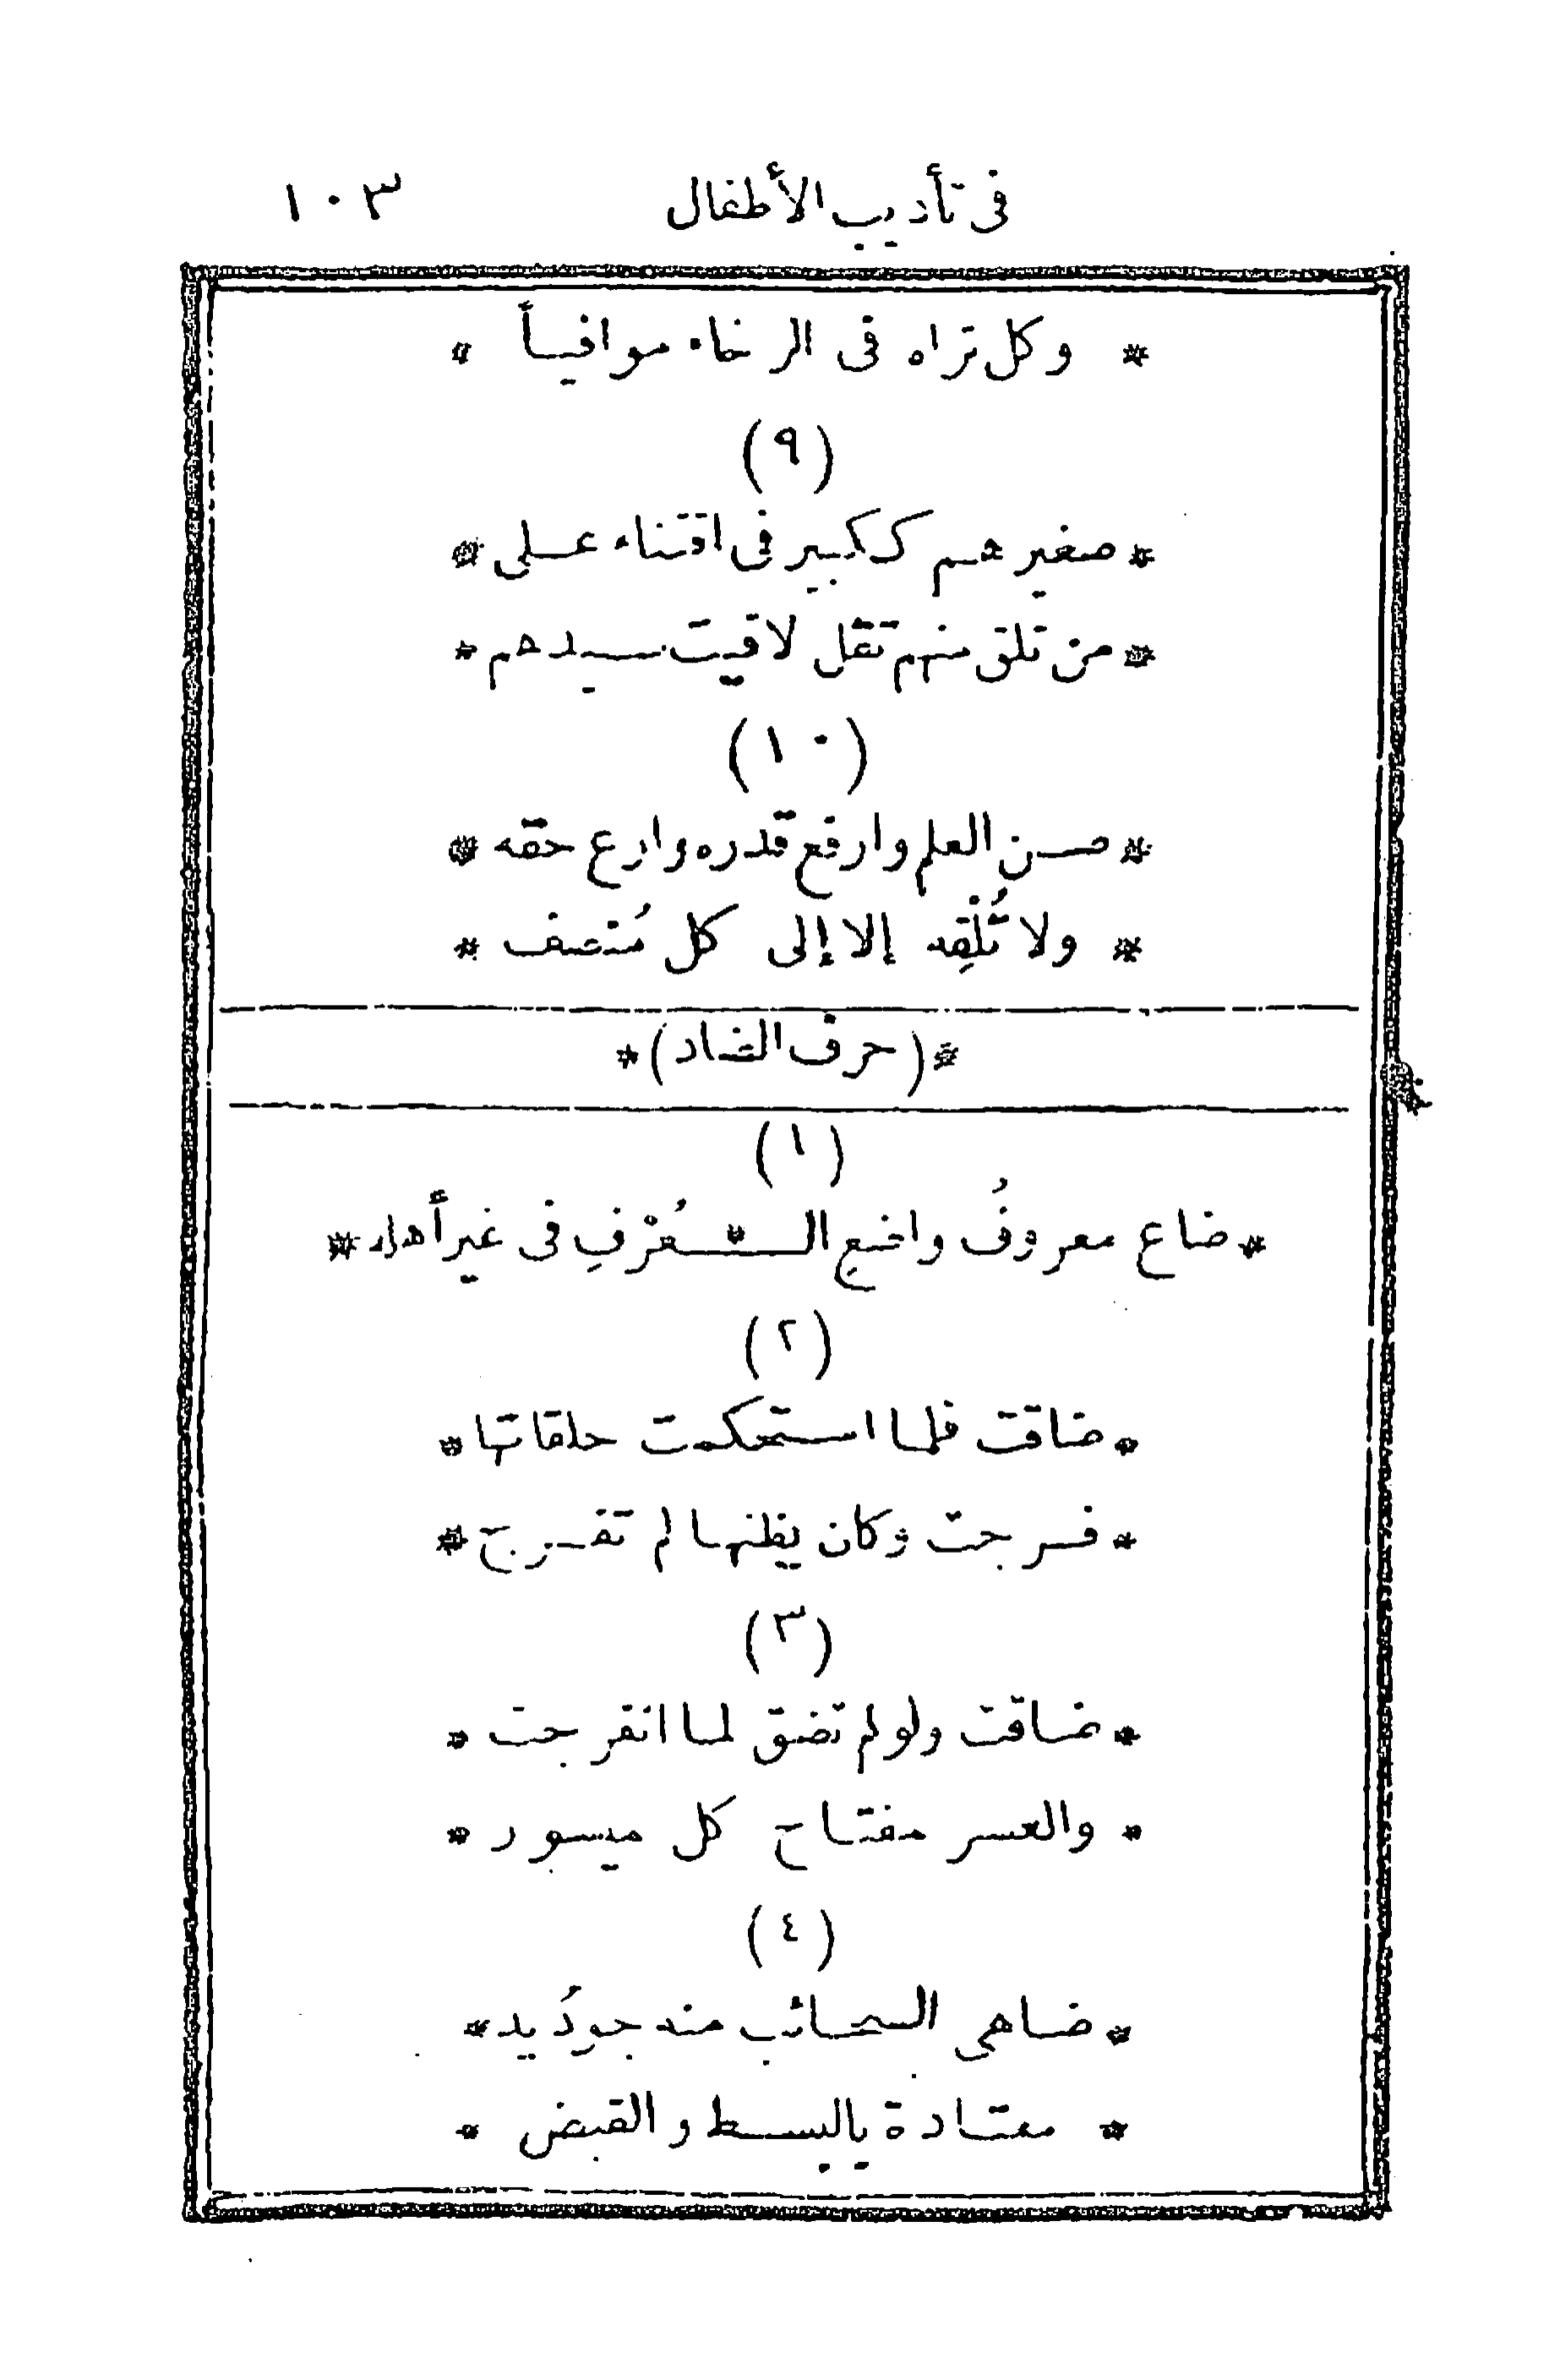 فى تأديب الأطفال ١٠٣
* وكل تراه فى الرخاء موافياً *
(٩)
* صغيرهم ككبير فى اقتناء على *
* من تلق منهم تقل لاقيت سيدهم *
(١٠)
* صن العلم وارفع قدره وارع حقه *
* ولا تُلْقِه إلا إلى كل مُنصف *
*(حرف الضاد)*
(١)
* ضاع معروفُ واضعِ الـ * ـعُرْفِ فى غير أهله *
(٢)
* ضاقت فلما استحكمت حلقاتها *
* فرجت وكان يظنها لم تفرج *
(٣)
* ضاقت ولو لم تضق لما انفرجت *
* والعسر مفتاح كل ميسور *
(٤)
* ضاهى السحائب منه جودُ يد *
* معتادة بالبسط والقبض *